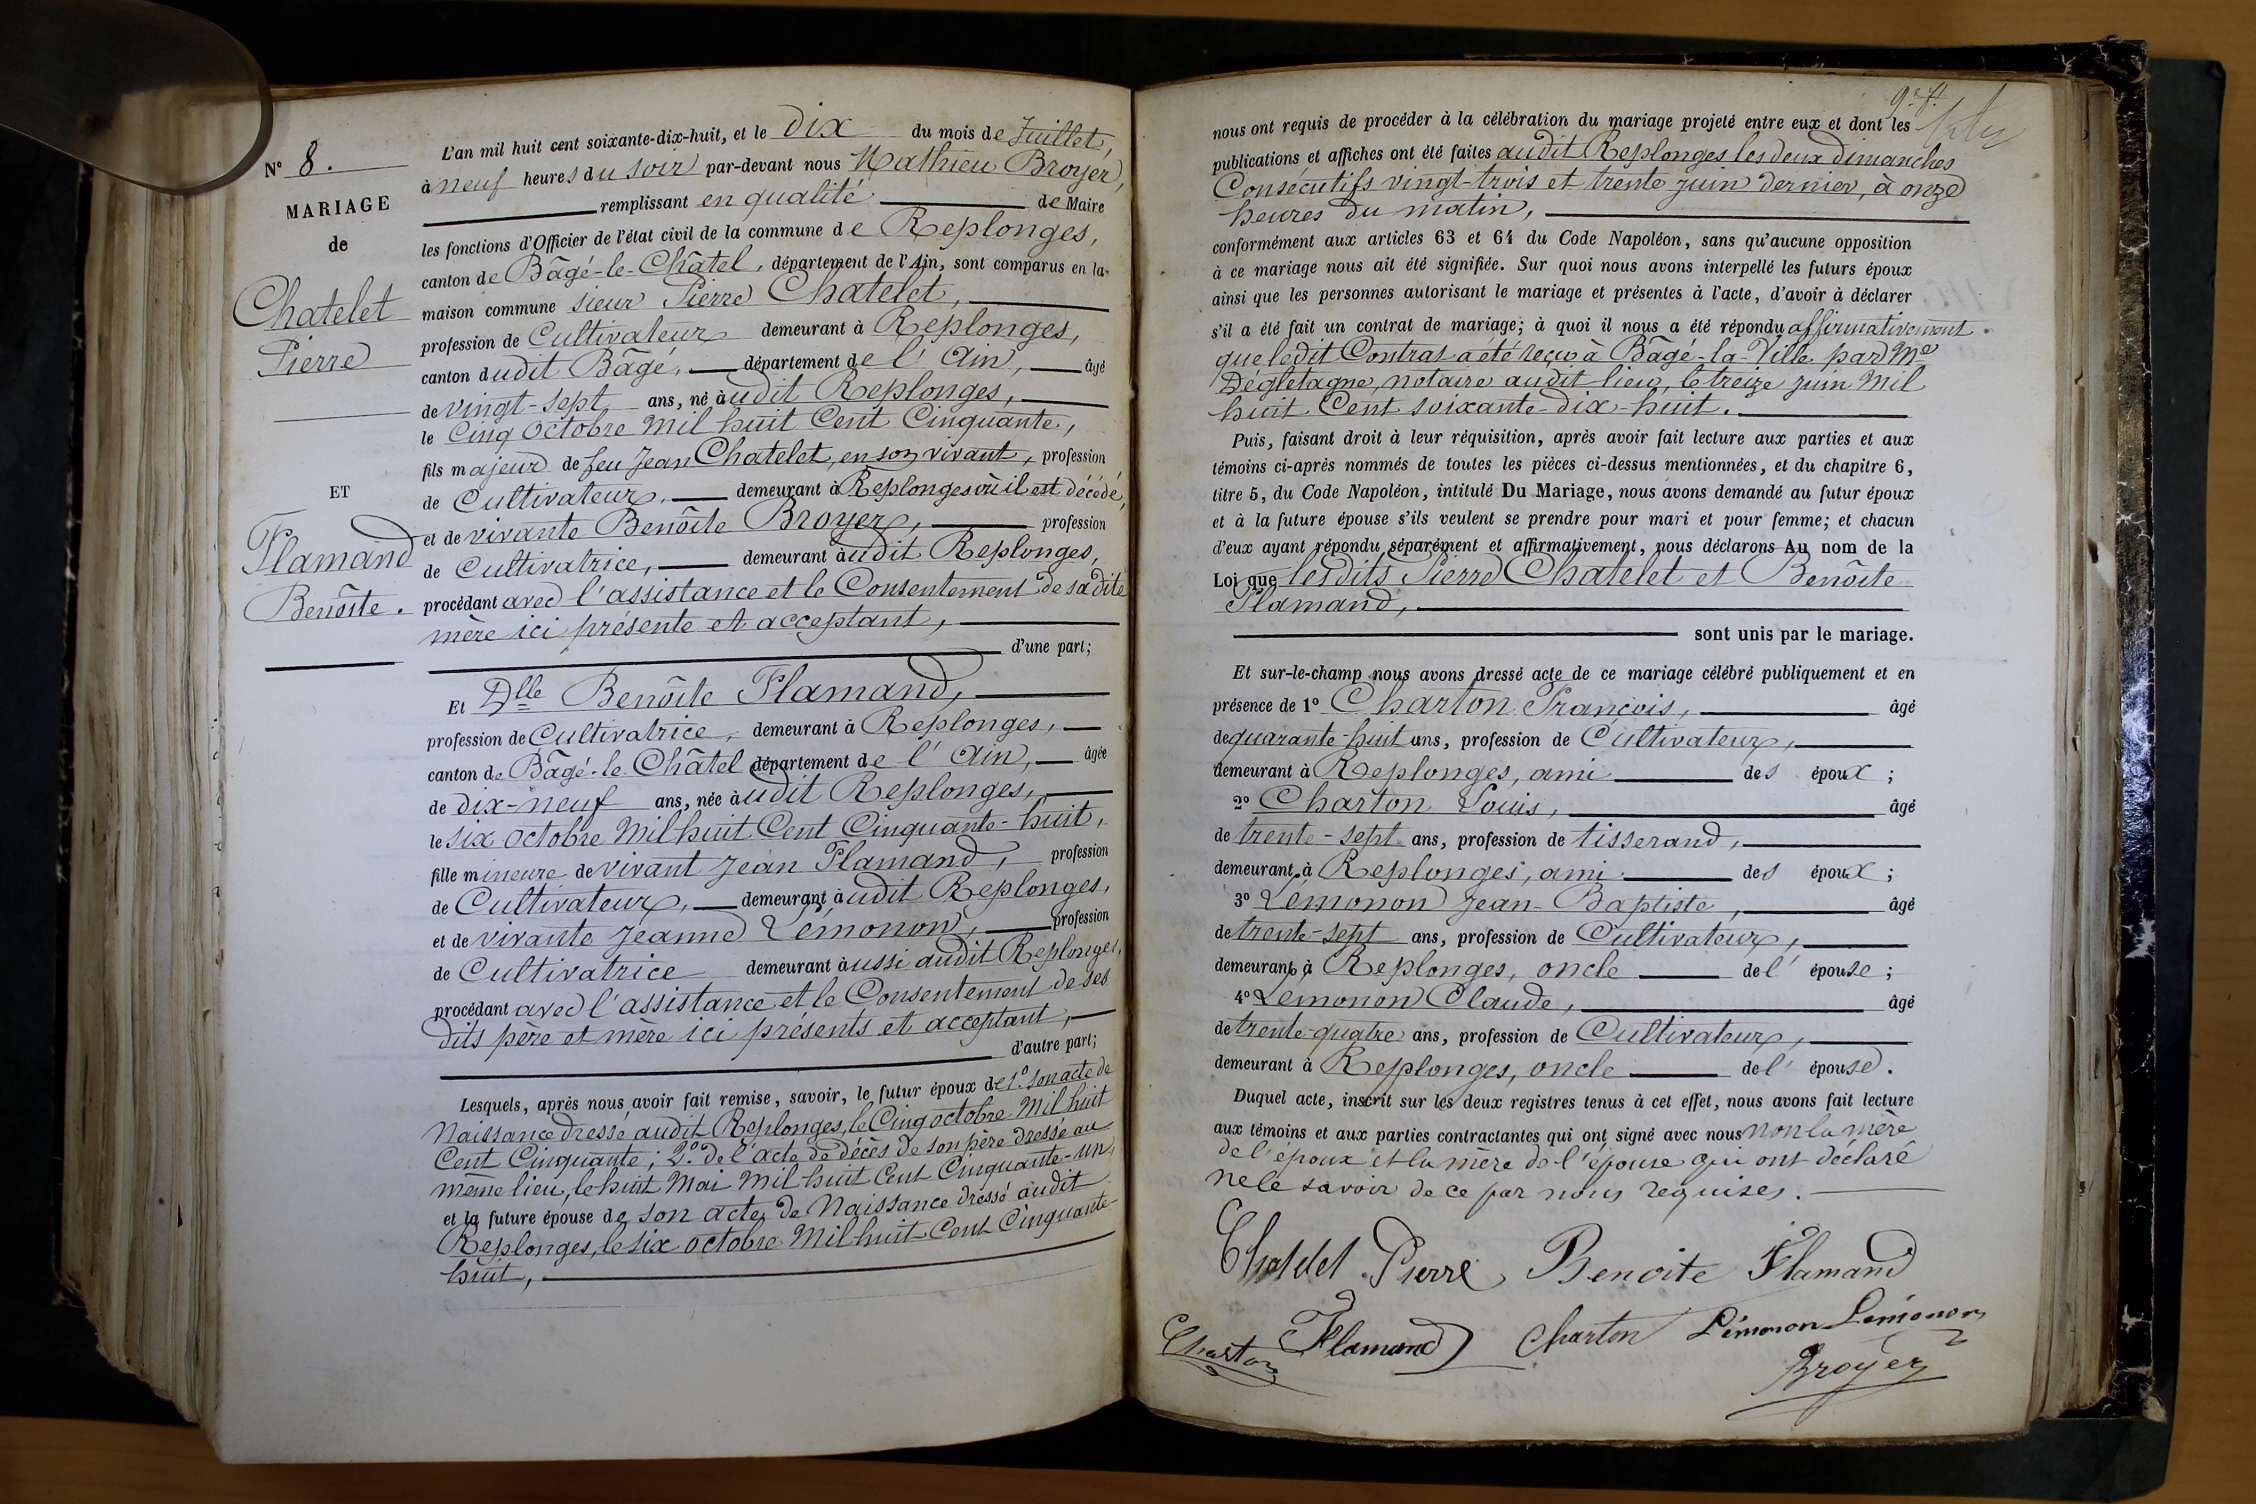 N° 8.
MARIAGE
de
Chatelet
Pierre
ET
Flamand
Benôite.
L'an mil huit cent soixante-dix-huit, et le dix du mois de Juillet,
à neuf heures du soir par-devant nous Mathieu Broyer,
remplissant en qualité de Maire
les fonctions d'Officier de l'état civil de la commune de Replonges,
canton de Bâgé-le-Châtel, département de l'Ain, sont comparus en la
maison commune sieur Pierre Chatelet,
profession de Cultivateur demeurant à Replonges,
canton dudit Bâgé, département de l'Ain, âgé
de vingt-sept ans, né audit Replonges,
le Cinq Octobre Mil huit Cent Cinquante,
fils majeur de feu Jean Chatelet, en son vivant, profession
de Cultivateur, demeurant à Replonges où il est décédé,
et de vivante Benôite Broyer, profession
de Cultivatrice, demeurant audit Replonges,
procédant avec l'assistance et le Consentement de sa dite
mère ici présente et acceptant,
d'une part;
Et Dlle Benôite Flamand,
profession de Cultivatrice, demeurant à Replonges,
canton de Bâgé-le-Châtel département de l'Ain, âgée
de dix-neuf ans, née audit Replonges,
le six octobre Mil huit Cent Cinquante-huit,
fille mineure de vivant Jean Flamand, profession
de Cultivateur, demeurant audit Replonges,
et de vivante Jeanne Lémonon, profession
de Cultivatrice demeurant aussi audit Replonges,
procédant avec l'assistance et le Consentement de ses
dits père et mère ici présents et acceptant,
d'autre part;
Lesquels, après nous avoir fait remise, savoir, le futur époux de 1° son acte de
Naissance dressé audit Replonges, le Cinq octobre Mil huit
Cent Cinquante; 2° de l'acte de décès de son père dressé au
même lieu, le huit Mai Mil huit Cent Cinquante-un,
et la future épouse de son acte de Naissance dressé audit
Replonges, le six octobre Mil huit Cent Cinquante-
huit,
nous ont requis de procéder à la célébration du mariage projeté entre eux et dont les
publications et affiches ont été faites audit Replonges les deux dimanches
Consécutifs vingt-trois et trente juin dernier, à onze
heures du matin,
conformément aux articles 63 et 64 du Code Napoléon, sans qu'aucune opposition
à ce mariage nous ait été signifiée. Sur quoi nous avons interpellé les futurs époux
ainsi que les personnes autorisant le mariage et présentes à l'acte, d'avoir à déclarer
s'il a été fait un contrat de mariage; à quoi il nous a été répondu affirmativement
que ledit Contrat a été reçu à Bâgé-la-Ville par Me
Dégletagne, notaire audit lieu, le treize juin Mil
huit Cent soixante-dix-huit.
Puis, faisant droit à leur réquisition, après avoir fait lecture aux parties et aux
témoins ci-après nommés de toutes les pièces ci-dessus mentionnées, et du chapitre 6,
titre 5, du Code Napoléon, intitulé Du Mariage, nous avons demandé au futur époux
et à la future épouse s'ils veulent se prendre pour mari et pour femme; et chacun
d'eux ayant répondu séparément et affirmativement, nous déclarons Au nom de la
Loi que lesdits Pierre Chatelet et Benôite
Flamand,
sont unis par le mariage.
Et sur-le-champ nous avons dressé acte de ce mariage célébré publiquement et en
présence de 1° Charton François, âgé
de quarante-huit ans, profession de Cultivateur,
demeurant à Replonges, ami des époux;
2° Charton Louis, âgé
de trente-sept ans, profession de tisserand,
demeurant à Replonges, ami des époux;
3° Lémonon Jean-Baptiste, âgé
de trente-sept ans, profession de Cultivateur,
demeurant à Replonges, oncle de l'épouse;
4° Lémonon Claude, âgé
de trente-quatre ans, profession de Cultivateur,
demeurant à Replonges, oncle de l'épouse.
Duquel acte, inscrit sur les deux registres tenus à cet effet, nous avons fait lecture
aux témoins et aux parties contractantes qui ont signé avec nous non la mère
de l'époux et la mère de l'épouse qui ont déclaré
ne le savoir de ce par nous requises.
Chatelet Pierre Benoite Flamand
Charton Flamand Charton Lémonon Lémonon
Broyer